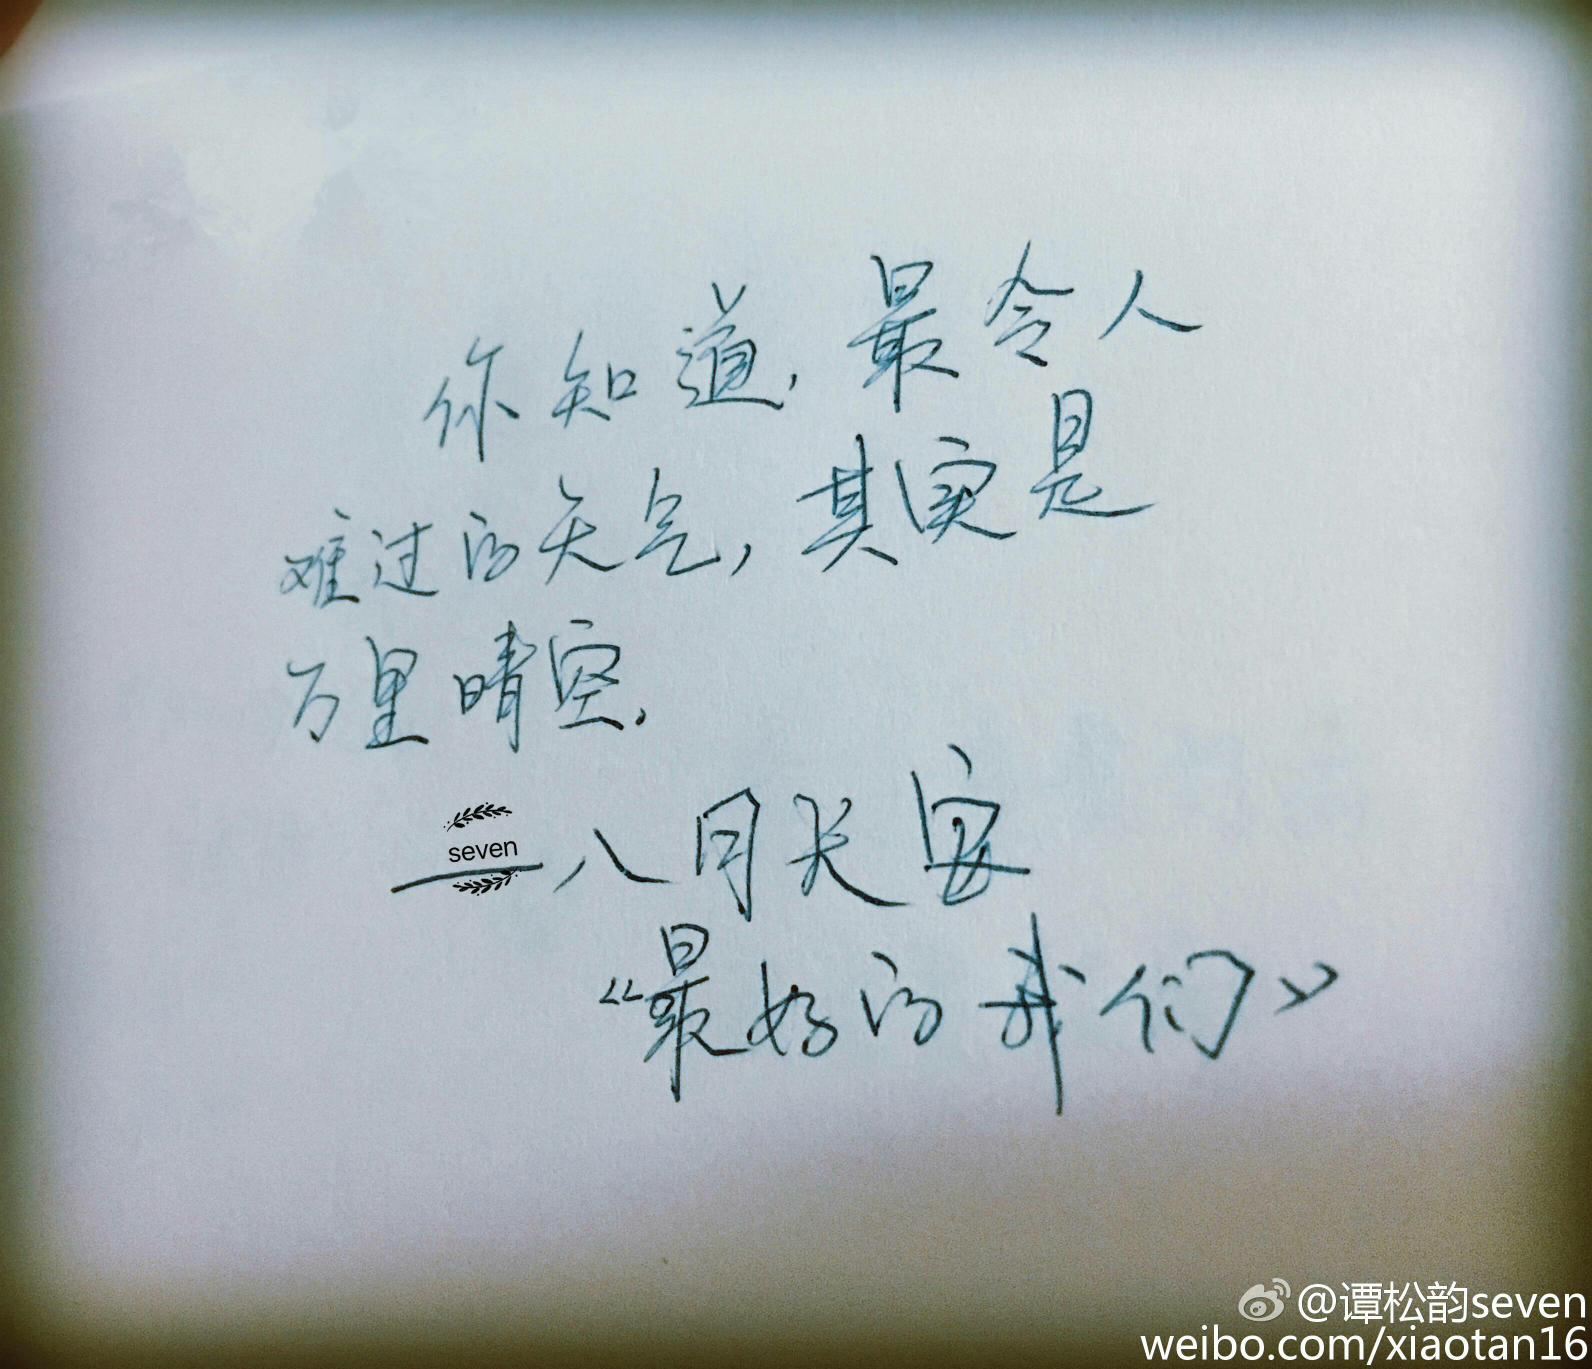 你知道,最令人
难过的天气,其实是
万里晴空.
seven
——八月长安
《最好的我们》
@谭松韵seven
weibo.com/xiaotan16